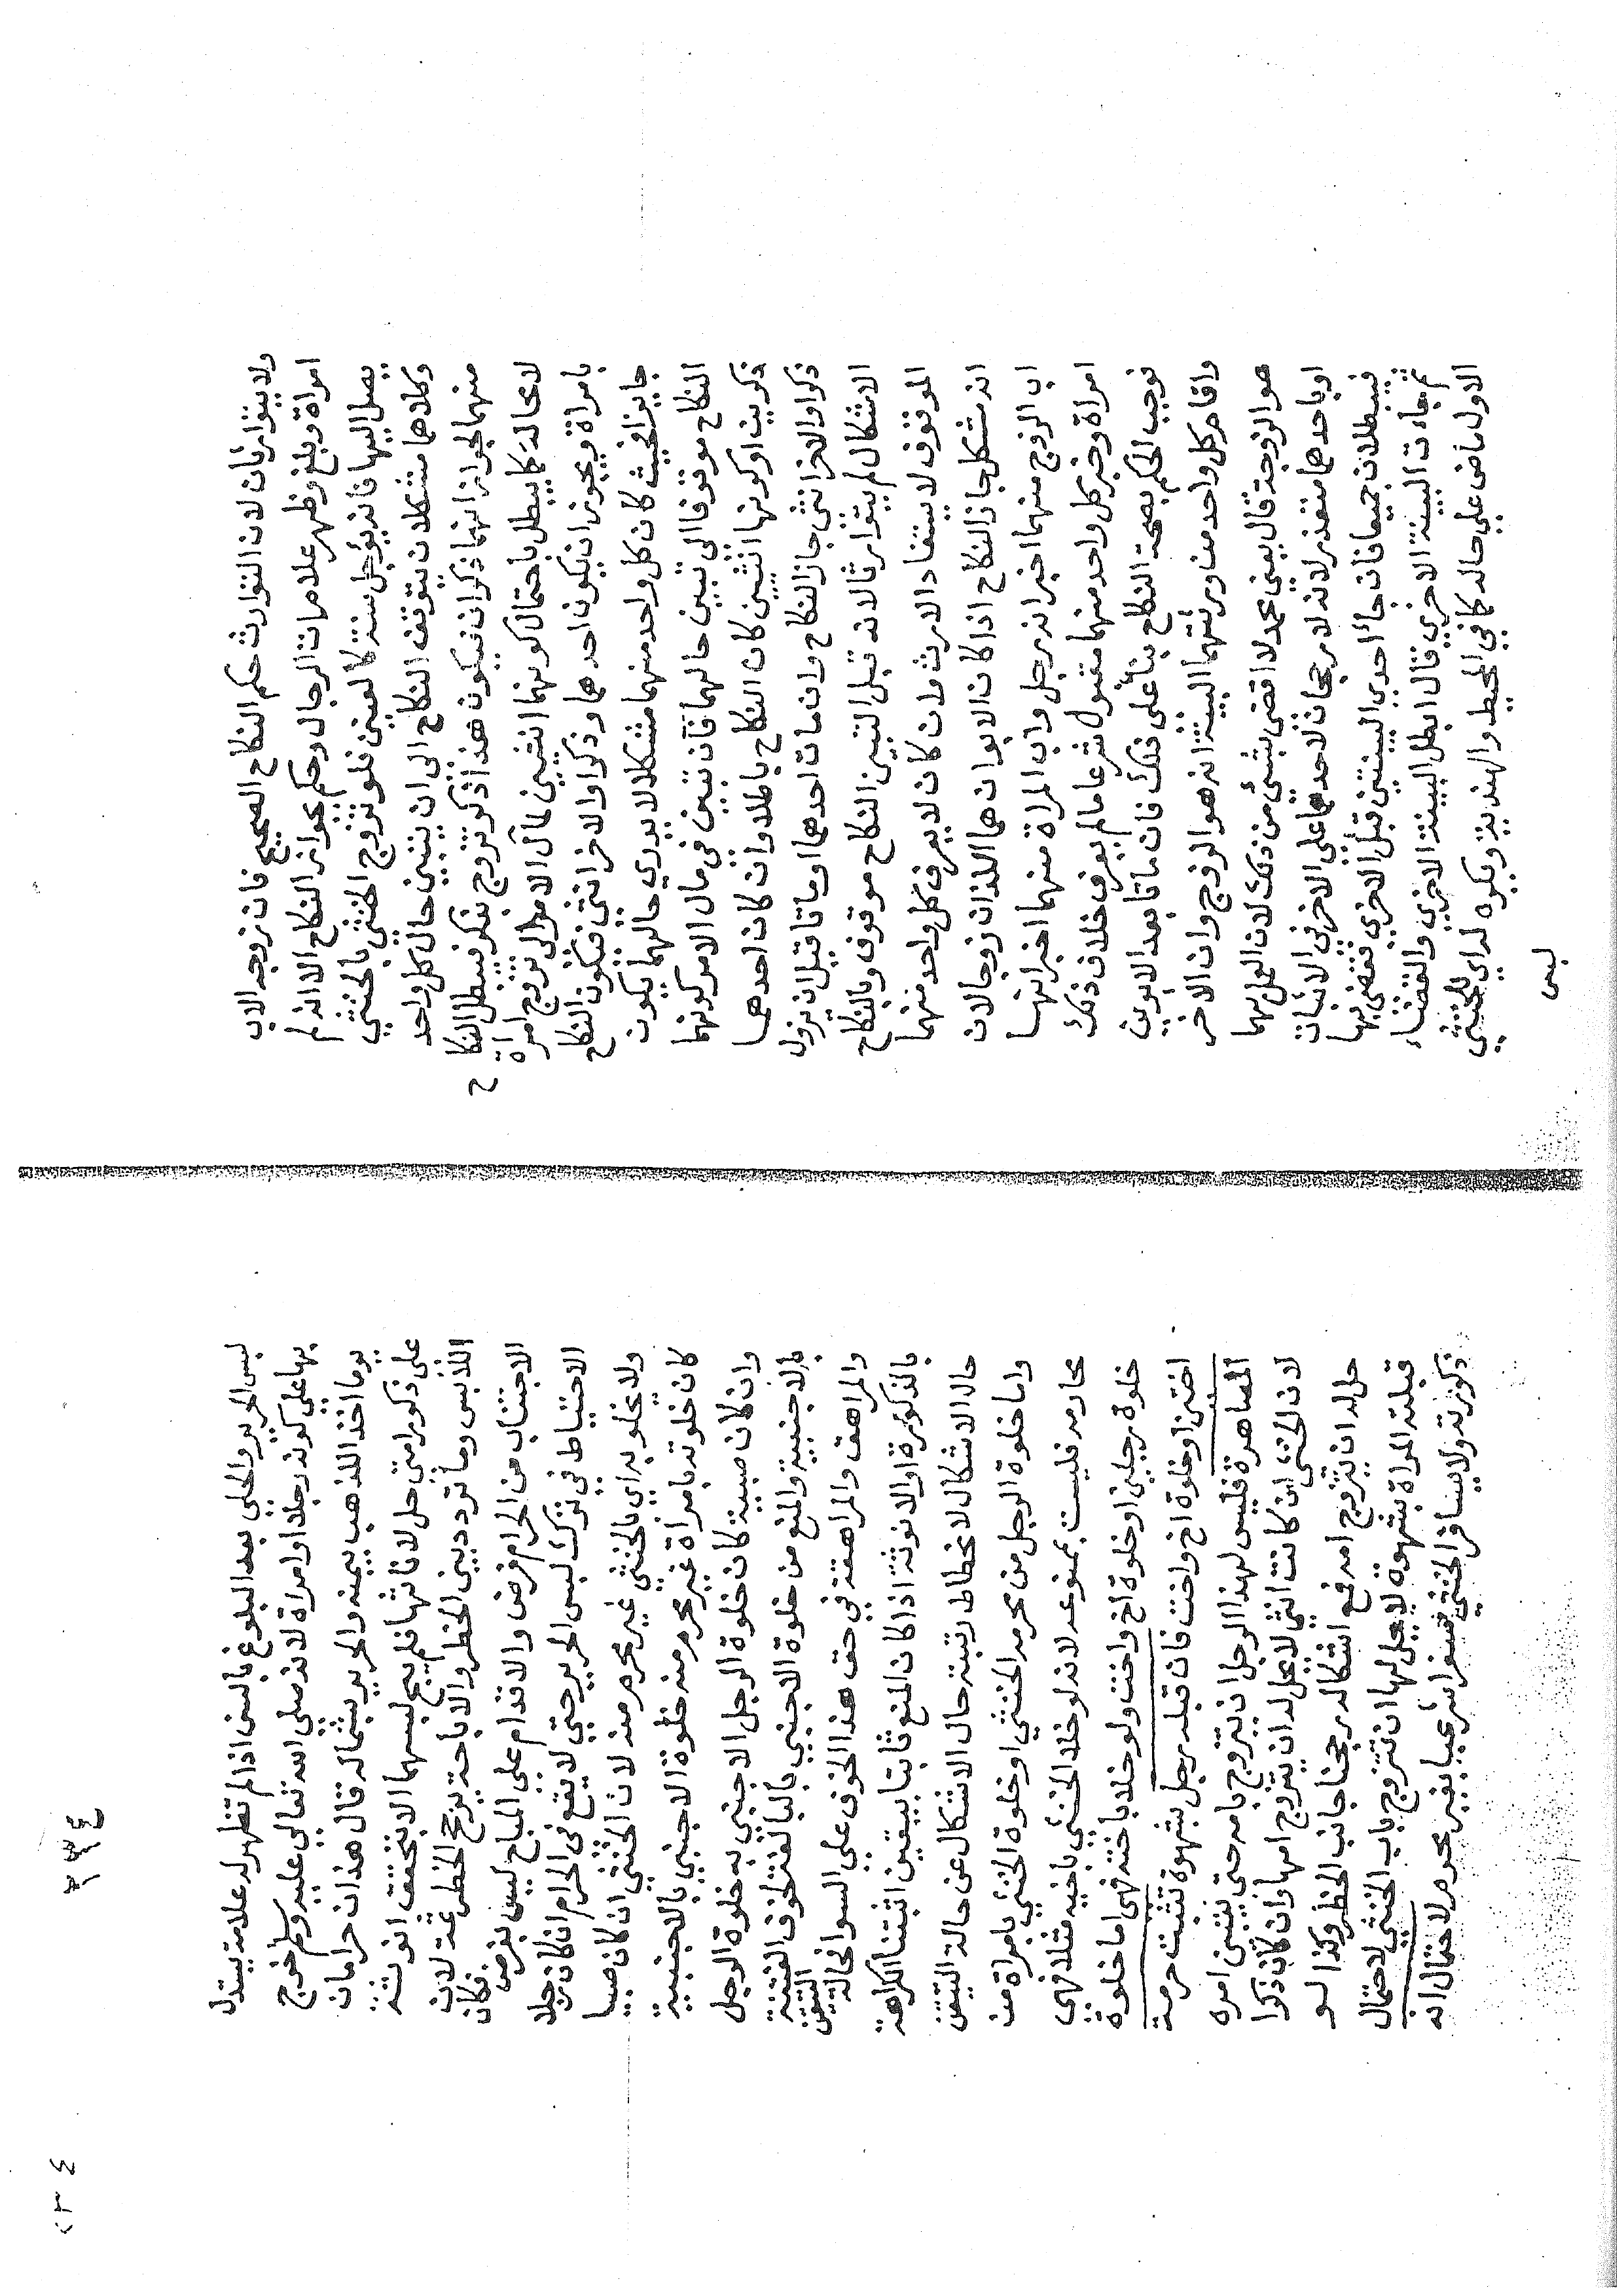 ولا يتوارثان لان التوارث حكم النكاح الصحيح فان زوجه الاب
امراة وبلغ وظهر علامات الرجال وحكم بجواز النكاح الا انه لم
يصل اليها فانه يؤجل سنة كالعنين فلو تزوج الخنثي بالخنثي
وكلاهما مشكلان يتوقف النكاح الى ان يتبين حال كل واحد
منهما لجواز انهما ذكران فيكون هذا ذكر تزوج بذكر فيبطل النكاح
لا محالة كما يبطل باحتمال كونهما انثيين لمآل الامر الى تزوج امراة
بامراة ويجوز ان يكون احدهما ذكرا والاخر انثى فيكون النكاح
جايزا فحيث كان كل واحد منهما مشكلا لا يدري حالهما يكون
النكاح موقوفا الى تبين حالهما فان تبين في مال الامر كونهما
ذكرين او كونهما انثيين كان النكاح باطلا وان كان احدهما
ذكرا والاخر انثى جاز النكاح وان مات احدهما او ماتا قبل ان يزول
الاشكال لم يتوارثا لانه قبل التبين النكاح موقوف وبالنكاح
الموقوف لا يستفاد الارث وان كان لا يعرف كل واحد منهما
انه مشكل جاز النكاح اذا كان الابوان هما اللذان زوجا لان
اب الزوج منهما اخبر انه رجل واب المراة منهما اخبر انها
امراة وخبر كل واحد منهما مقبول شرعا ما لم يعرف خلاف ذلك
فوجب الحكم بصحة النكاح بناء على ذلك فان ماتا بعد الابوين
واقام كل واحد من ورثتهما البينة انه هو الزوج وان الاخر
هو الزوجة قال يعني محمد لا اقضى بشئ من ذلك لان العمل بهما
او باحدهما متعذر لانه لا رجحان لاحدهما على الاخر في الاثبات
فيبطلان جميعا فان جائت احدي البينتين قبل الاخري فقضى بها
ثم جاءت البينة الاخري قال ابطل البينة الاخري والقضاء
الاول ماض علي حاله كما في المحيط والهندية ويكره له اي للخنثي
لبس
لبس الحرير والحلي بعد البلوغ بالسن اذا لم تظهر له علامة يستدل
بها علي كونه رجلا او امراة لانه صلى الله تعالي عليه وسلم خرج
يوما اخذ الذهب بيمينه والحرير بشماله قال هذان حرامان
على ذكور امتي حل لاناثها فلم يبح لبسهما الا بتحقق انوثة
اللابس وما تردد بين الحظر والاباحة يرجح الحظر عنه لان
الاجتناب من الحرام فرض والاقدام علي المباح ليس بفرض فكان
الاحتياط في ترك لبس الحرير حتي لا يقع في الحرام ان كان رجلا
ولا يخلو به اي بالخنثي غير محرم منه لان الخنثي ان كان صبيا
كان خلوته بامراة غير محرم منه خلوة الاجنبي بالاجنبية
وان كان صبية كان خلوة الرجل الاجنبي به خلوة الرجل
بالاجنبية والمنع من خلوة الاجنبي بالبالغة لخوف الفتنة
والمراهق والمراهقة في حق هذا الخوف علي السوا فحالة التيقن
بالذكورة او الانوثة اذا كان المنع ثابتا بيقين اثبتنا الكراهة
حال الاشكال لانحطاط رتبة حال الاشكال عن حالة التيقن
واما خلوة الرجل من محرمه الخنثي او خلوة الخنثي بامراة من
محارمه فليست بممنوعة لانه لو خلا الخنثي باخيه مثلا فهي
خلوة رجلين او خلوة اخ واخت ولو خلا باخته فهي اما خلوة
اختين او خلوة اخ واخت فان قبله رجل بشهوة تثبت حرمة
المصاهرة فليس لهذا الرجل ان يتزوج بامه حتي يتبين امره
لان الخنثى ان كانت انثى لا يحل له ان يتزوج امها وان كان ذكرا
حل له ان يتزوج امه فمع اشكاله رجحنا جانب الحظر وكذا لو
قبلته المراة بشهوة لا يحل لها ان تتزوج باب الخنثي لاحتمال
ذكورته ولا يسافر الخنثي سفرا شرعيا بغير محرم لاحتمال انه
٢٣٤
٢٣٤